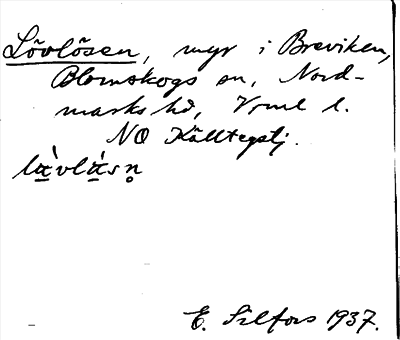 Lövlösen, myr i Breviken,
Blomskogs sn, Nord-
marks hd, Vrml l.
NO Källtegstj.
E. Silfors 1937.